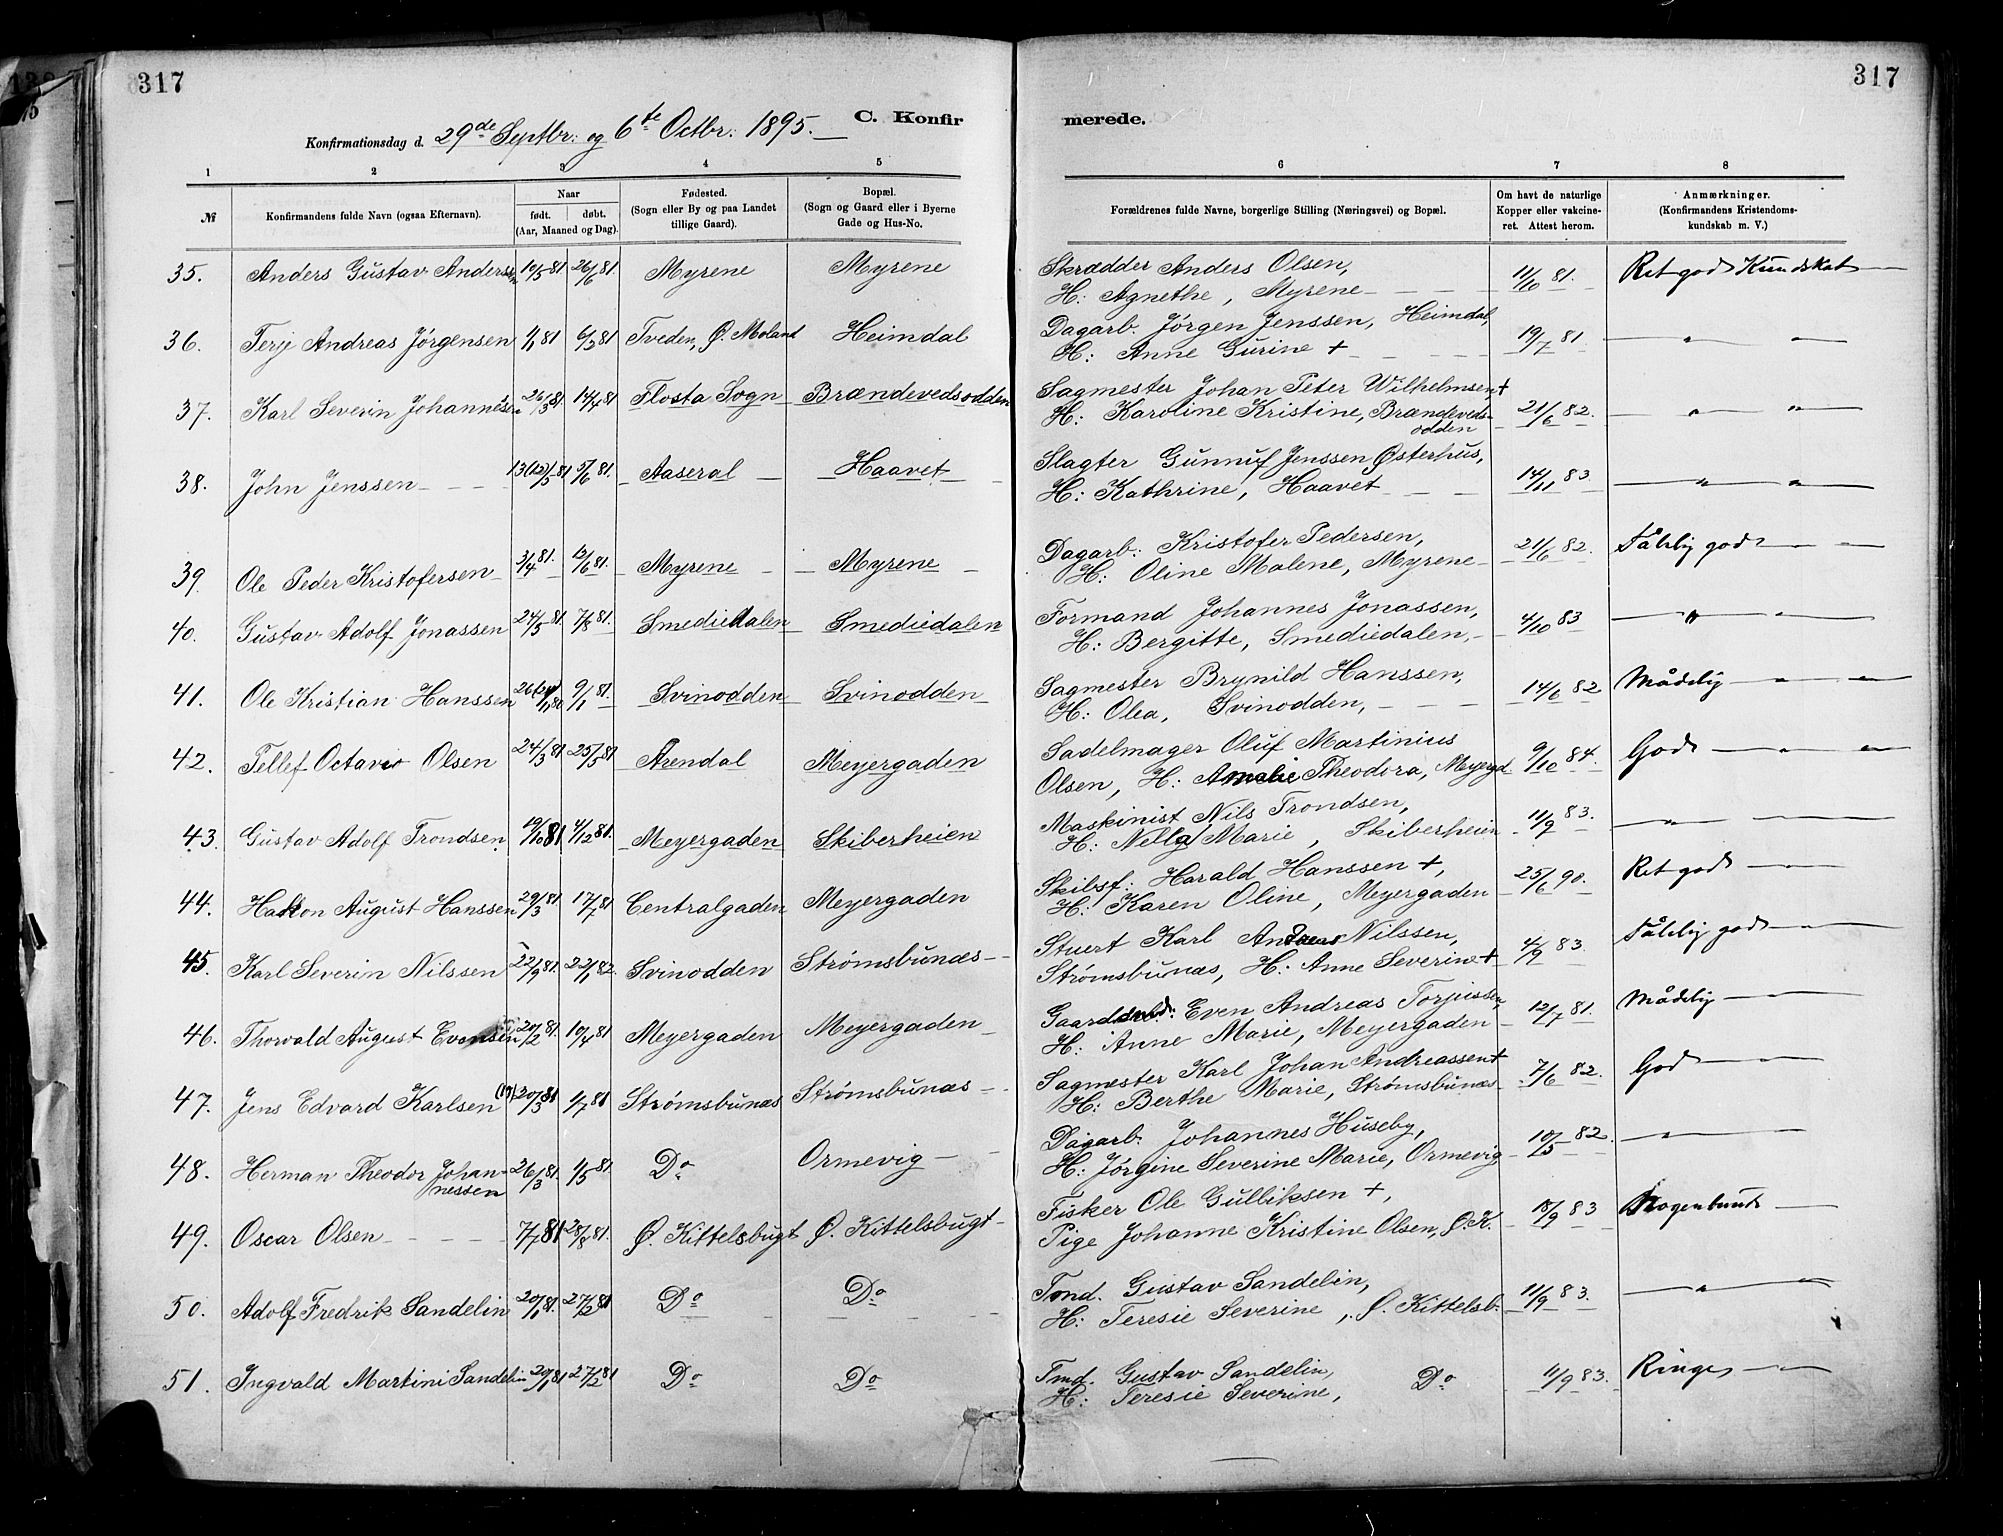 317
317
C. Konfirmerede.
Konfirmationsdag d. 29de Septbr: og 6te Octbr: 1895.
1 2 3 4 5 6 7 8
№ Konfirmandens fulde Navn (ogsaa Efternavn). Naar født. døbt. (Aar, Maaned og Dag). Fødested. (Sogn eller By og paa Landet tillige Gaard). Bopæl. (Sogn og Gaard eller i Byerne Gade og Hus-No. Forældrenes fulde Navne, borgerlige Stilling (Næringsvei) og Bopæl. Om havt de naturlige Kopper eller vakcineret. Attest herom. Anmærkninger. (Konfirmandens Kristendomskundskab m. V.)
35. Anders Gustav Anderssen 19/5 81 26/6 81. Myrene Myrene Skrædder Anders Olsen, 11/10 81. Ret god Kundskab
H: Agnethe, Myrene
36. Terje Andreas Jørgensen 1/1 81 6/2 81 Tveden, Ø. Moland Heimdal Dagarb. Jørgen Jenssen, Heimdal, 19/7 81. " "
H: Anne Gurine +
37. Karl Severin Johannesen 26/3 81. 14/4 81 Flosta Sogn Brændevedsodden Sagmester Johan Peter Wilhelmsen + 21/6 82. " "
H: Karoline Kristine, Brændeveds-
odden
38. John Jenssen 13(12)/5 81 5/6 81. Aaseral Haavet Slagter Gunnuf Jenssen Østerhus, 14/11 83 " "
H: Kathrine, Haavet
39. Ole Peder Kristofersen 3/4 81. 12/6 81. Myrene Myrene Dagarb: Kristofer Pedersen, 21/6 82. Tålelig god
H: Oline Malene, Myrene
40. Gustav Adolf Jonassen 24/5 81. 7/8 81. Smediedalen Smediedalen Formand Johannes Jonassen, 4/10 83 " "
H: Bergitte, Smediedalen,
41. Ole Kristian Hanssen 9/1 81. Svinodden Svinodden Sagmester Brynild Hanssen, 14/6 82 Mådelig " "
H: Olea, Svinodden,
42. Tellef Octavio Olsen 24/3 81. 25/5 81 Arendal Meyergaden Sadelmager Oluf Martinius 9/10 84. God " "
Olsen, H: Amalie Theodora, Meyergd
43. Gustav Adolf Trondsen. 19/10 81 4/12 81. Meyergaden Skiberheien Maskinist Nils Trondsen, 11/9 83. "
H: Nella Marie, Skiberheien
44. Hakon August Hanssen 29/3 81 17/7 81 Centralgaden Meyergaden Skibsf: Harald Hanssen +, 25/6 90. Ret god
H: Karen Oline, Meyergaden
45. Karl Severin Nilssen 22/9 81. 22/1 82. Svinodden Strømsbunæs Stuert Karl Andreas Nilssen, 4/9 83. Tålelig god "
Strømsbunæs, H: Anne Severine +
46. Thorvald August Evensen 20/2 81. 10/4 81 Meyergaden Meyergaden Even Andreas Torjussen, 12/7 81. Mådelig "
H: Anne Marie, Meyergaden
47. Jens Edvard Karlsen (19)20/3 81 1/7 81 Strømsbunæs Strømsbunas Sagmester Karl Johan Andreassen + 7/6 82. God "
H: Berthe Marie, Strømsbunæs
48. Herman Theodor Johan- 26/3 81. 1/5 81. Do Ormevig Dagarb. Johannes Huseby, 10/5 82. "
nessen H: Jørgine Severine Marie, Ormevig
49. Oscar Olsen 7/7 81 28/8 81. Ø. Kittelsbugt Ø. Kittelsbugt Fisker Ole Gulliksen +, 18/9 83 Nogenlunde
Pige Johanne Kristine Olsen, Ø. K.
50. Adolf Fredrik Sandelin 20/1 81. 27/2 81 Do Do Tmd. Gustav Sandelin, 11/9 83. " "
H: Teresie Severine, Ø. Kittelsb.
51. Ingvald Martini Sandelin 20/1 81 27/2 81 Do Do Tmd. Gustav Sandelin, Do 11/9 83. Ringe
H: Teresie Severine,